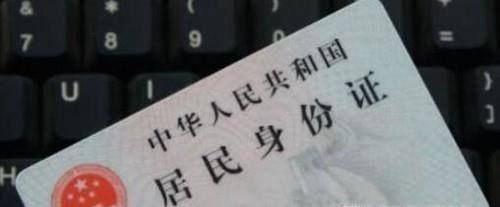 & * ( )
7 8 9 0
U I
中华人民共和国
居民身份证